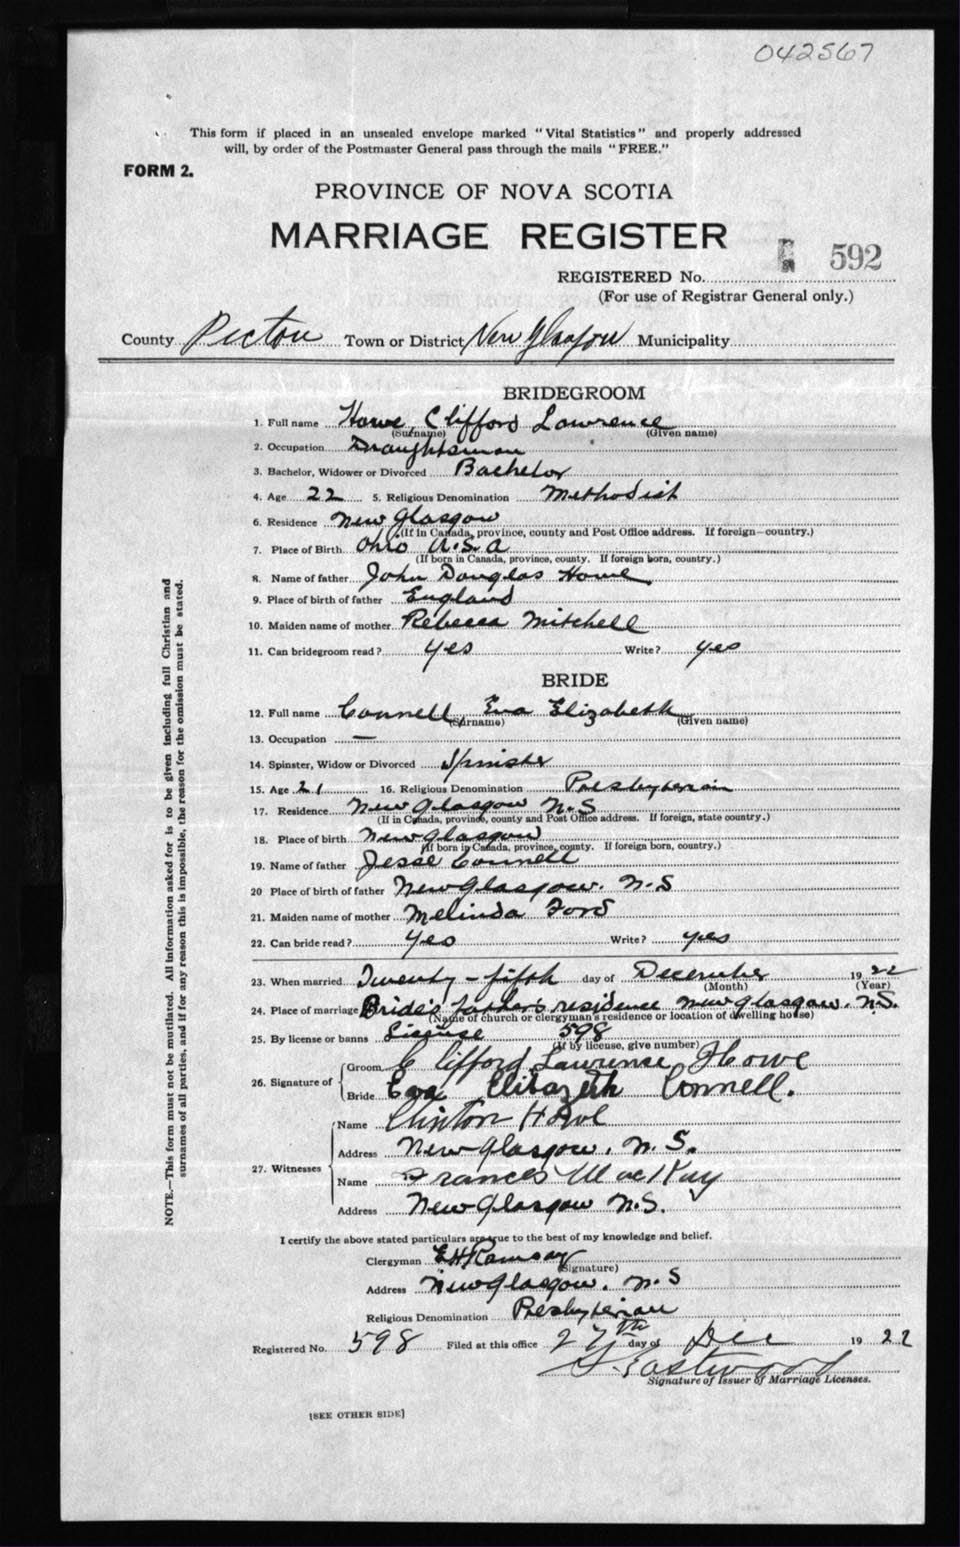 042567
This form if placed in an unsealed envelope marked "Vital Statistics" and properly addressed
will, by order of the Postmaster General pass through the mails "FREE."
FORM 2.
PROVINCE OF NOVA SCOTIA
MARRIAGE REGISTER
REGISTERED No. 592
(For use of Registrar General only.)
County Pictou Town or District New Glasgow Municipality
BRIDEGROOM
1. Full name Howe, Clifford Lawrence
(Surname) (Given name)
2. Occupation Draughtsman
3. Bachelor, Widower or Divorced Bachelor
4. Age 22 5. Religious Denomination Methodist
6. Residence New Glasgow
(If in Canada, province, county and Post Office address. If foreign—country.)
7. Place of Birth Ohio U.S.A
(If born in Canada, province, county. If foreign born, country.)
8. Name of father John Douglas Howe
9. Place of birth of father England
10. Maiden name of mother Rebecca Mitchell
11. Can bridegroom read? yes Write? yes
BRIDE
12. Full name Connell, Eva Elizabeth
(Surname) (Given name)
13. Occupation —
14. Spinster, Widow or Divorced Spinster
15. Age 21 16. Religious Denomination Presbyterian
17. Residence New Glasgow N.S
(If in Canada, province, county and Post Office address. If foreign, state country.)
18. Place of birth New Glasgow
(If born in Canada, province, county. If foreign born, country.)
19. Name of father Jesse Connell
20 Place of birth of father New Glasgow. N.S
21. Maiden name of mother Melinda Ford
22. Can bride read? yes Write? yes
23. When married Twenty-fifth day of December 1922
(Month) (Year)
24. Place of marriage Bride's father's residence New Glasgow. N.S.
(Name of church or clergyman's residence or location of dwelling house)
25. By license or banns License 598
(If by license, give number)
26. Signature of Groom Clifford Lawrence Howe
Bride Eva Elizabeth Connell.
27. Witnesses Name Clinton Howe
Address New Glasgow. N.S.
Name Frances MacKay
Address New Glasgow N.S.
I certify the above stated particulars are true to the best of my knowledge and belief.
Clergyman E H Ramsay
(Signature)
Address New Glasgow. N.S
Religious Denomination Presbyterian
Registered No. 598 Filed at this office 27th day of Dec 1922
Eastwood
Signature of Issuer of Marriage Licenses.
[SEE OTHER SIDE]
NOTE.—This form must not be mutilated. All information asked for is to be given including full Christian and
surnames of all parties, and if for any reason this is impossible, the reason for the omission must be stated.